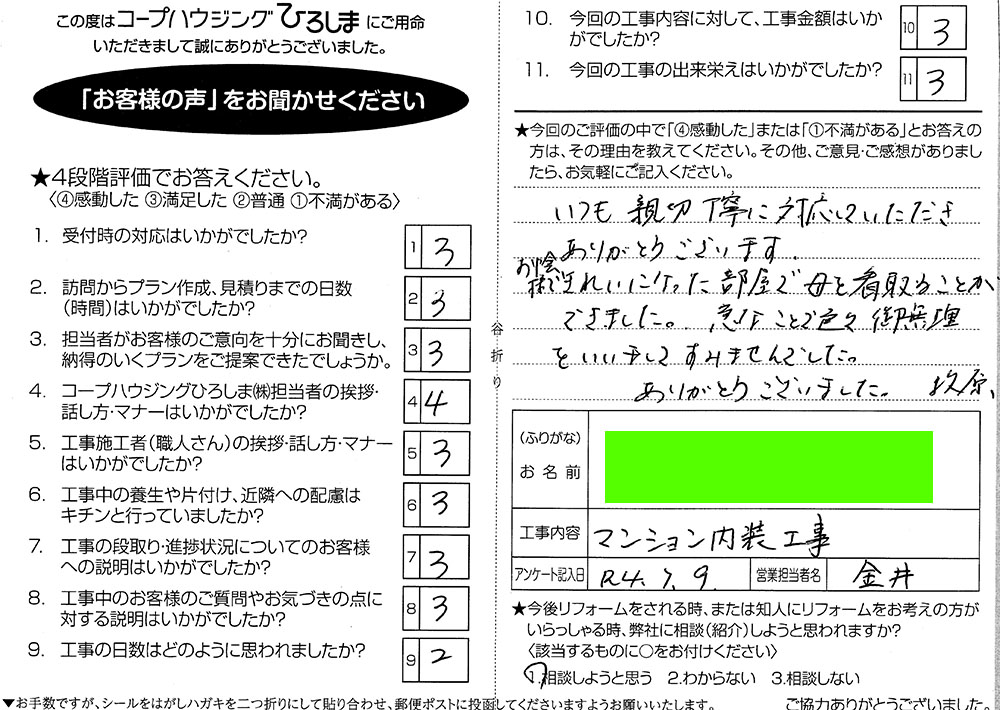 この度はコープハウジングひろしまにご用命
いただきまして誠にありがとうございました。
「お客様の声」をお聞かせください
★4段階評価でお答えください。
〈④感動した ③満足した ②普通 ①不満がある〉
1. 受付時の対応はいかがでしたか?
1 3
2. 訪問からプラン作成、見積りまでの日数
(時間)はいかがでしたか?
2 3
3. 担当者がお客様のご意向を十分にお聞きし、
納得のいくプランをご提案できたでしょうか。
3 3
4. コープハウジングひろしま㈱担当者の挨拶・
話し方・マナーはいかがでしたか?
4 4
5. 工事施工者(職人さん)の挨拶・話し方・マナー
はいかがでしたか?
5 3
6. 工事中の養生や片付け、近隣への配慮は
キチンと行っていましたか?
6 3
7. 工事の段取り・進捗状況についてのお客様
への説明はいかがでしたか?
7 3
8. 工事中のお客様のご質問やお気づきの点に
対する説明はいかがでしたか?
8 3
9. 工事の日数はどのように思われましたか?
9 2
▼お手数ですが、シールをはがしハガキを二つ折りにして貼り合わせ、郵便ポストに投函してくださいますようお願いいたします。
谷折り
10. 今回の工事内容に対して、工事金額はいか
がでしたか?
10 3
11. 今回の工事の出来栄えはいかがでしたか?
11 3
★今回のご評価の中で「④感動した」または「①不満がある」とお答えの
方は、その理由を教えてください。その他、ご意見・ご感想がありまし
たら、お気軽にご記入ください。
いつも 親切 丁寧に 対応していただき
ありがとうございます。
お陰様で きれいになった 部屋で 母を看取ることが
できました。 急なことで色々 御無理
をいいまして すみませんでした。
ありがとうございました。
(ふりがな)
お名前
工事内容 マンション内装工事
アンケート記入日 R4.7.9. 営業担当者名 金井
★今後リフォームをされる時、または知人にリフォームをお考えの方が
いらっしゃる時、弊社に相談(紹介)しようと思われますか?
〈該当するものに○をお付けください〉
1.相談しようと思う 2.わからない 3.相談しない
ご協力ありがとうございました。